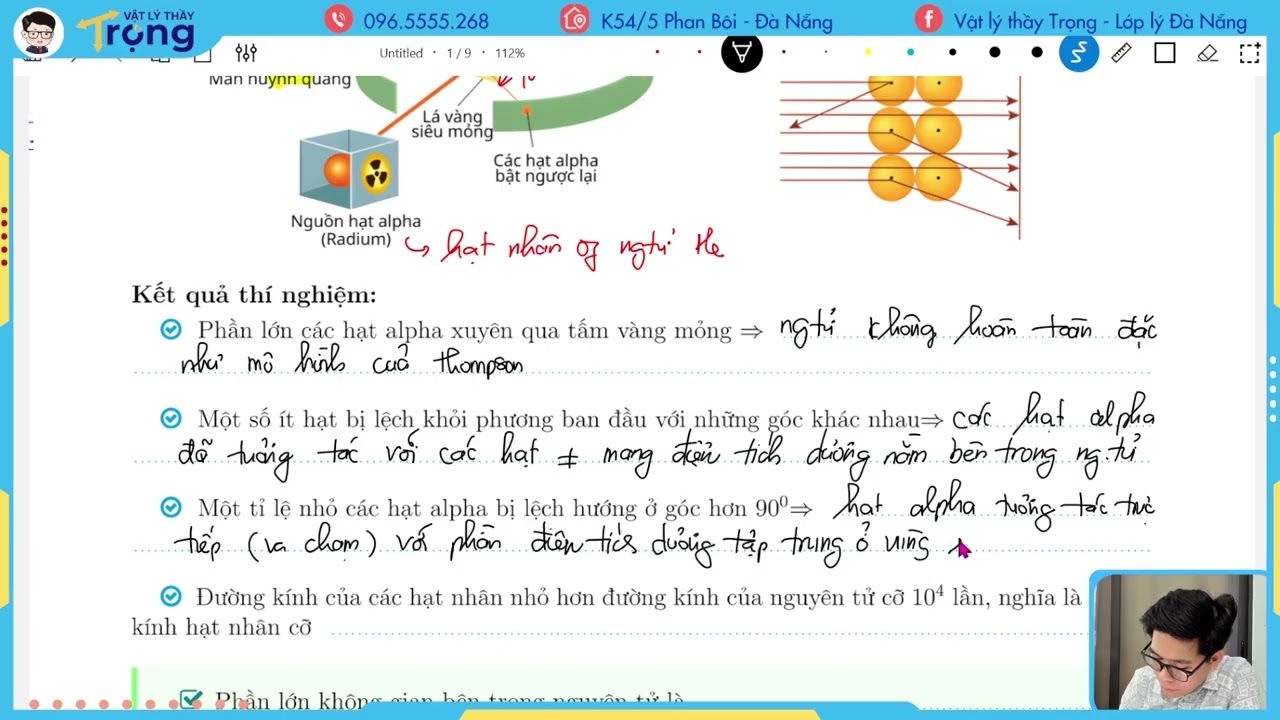 VẬT LÝ THẦY
Trọng
096.5555.268
K54/5 Phan Bôi - Đà Nẵng
Vật lý thầy Trọng - Lớp lý Đà Nẵng
Untitled • 1 / 9 • 112%
Màn huỳnh quang
Lá vàng
siêu mỏng
Các hạt alpha
bật ngược lại
Nguồn hạt alpha
(Radium)
hạt nhân of ngtử He
Kết quả thí nghiệm:
Phần lớn các hạt alpha xuyên qua tấm vàng mỏng ⇒ ngtử không hoàn toàn đặc
như mô hình của Thompson
Một số ít hạt bị lệch khỏi phương ban đầu với những góc khác nhau⇒ các hạt alpha
đã tương tác với các hạt ≠ mang điện tích dương nằm bên trong ng.tử
Một tỉ lệ nhỏ các hạt alpha bị lệch hướng ở góc hơn 90⁰⇒ hạt alpha tương tác trực
tiếp (va chạm) với phần điện tích dương tập trung ở vùng
Đường kính của các hạt nhân nhỏ hơn đường kính của nguyên tử cỡ 10⁴ lần, nghĩa là
kính hạt nhân cỡ
Phần lớn không gian bên trong nguyên tử là